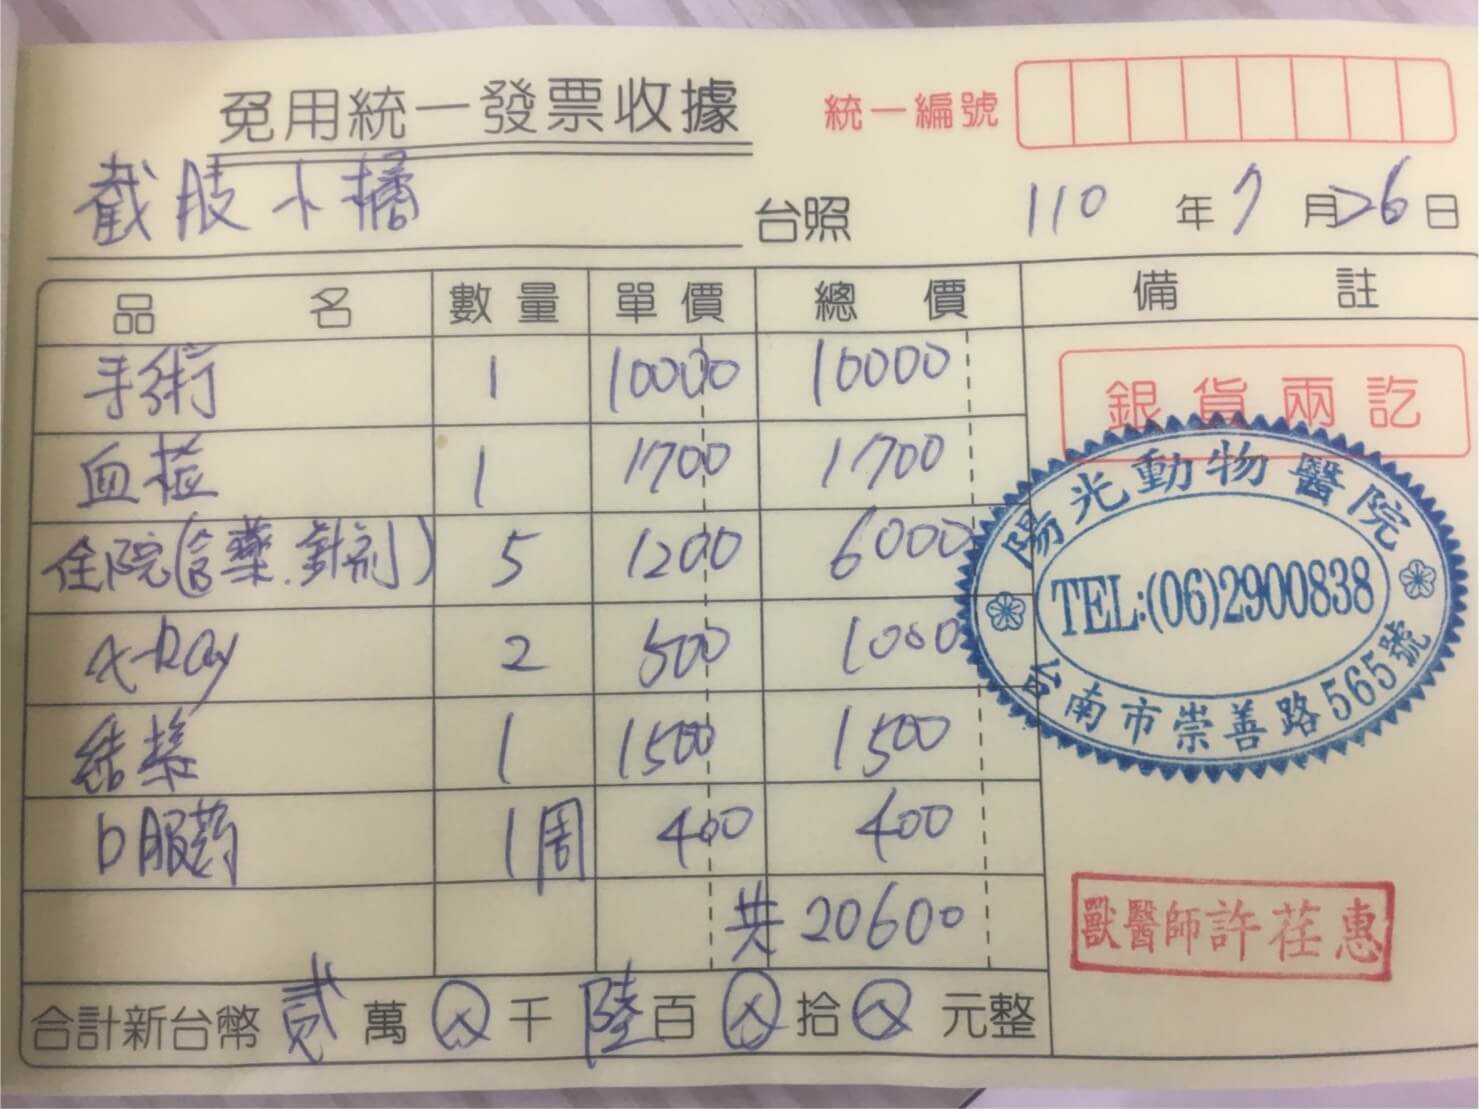 免用統一發票收據
統一編號
截肢小橘 台照
110年7月26日
品名 數量 單價 總價 備註
手術 1 10000 10000
血檢 1 1700 1700
住院(含藥.針劑) 5 1200 6000
X-Ray 2 500 1000
結紮 1 1500 1500
口服药 1周 400 400
共 20600
合計新台幣貳萬⊗千陸百⊗拾⊗元整
銀貨兩訖
陽光動物醫院
TEL:(06)2900838
台南市崇善路565號
獸醫師許荏惠